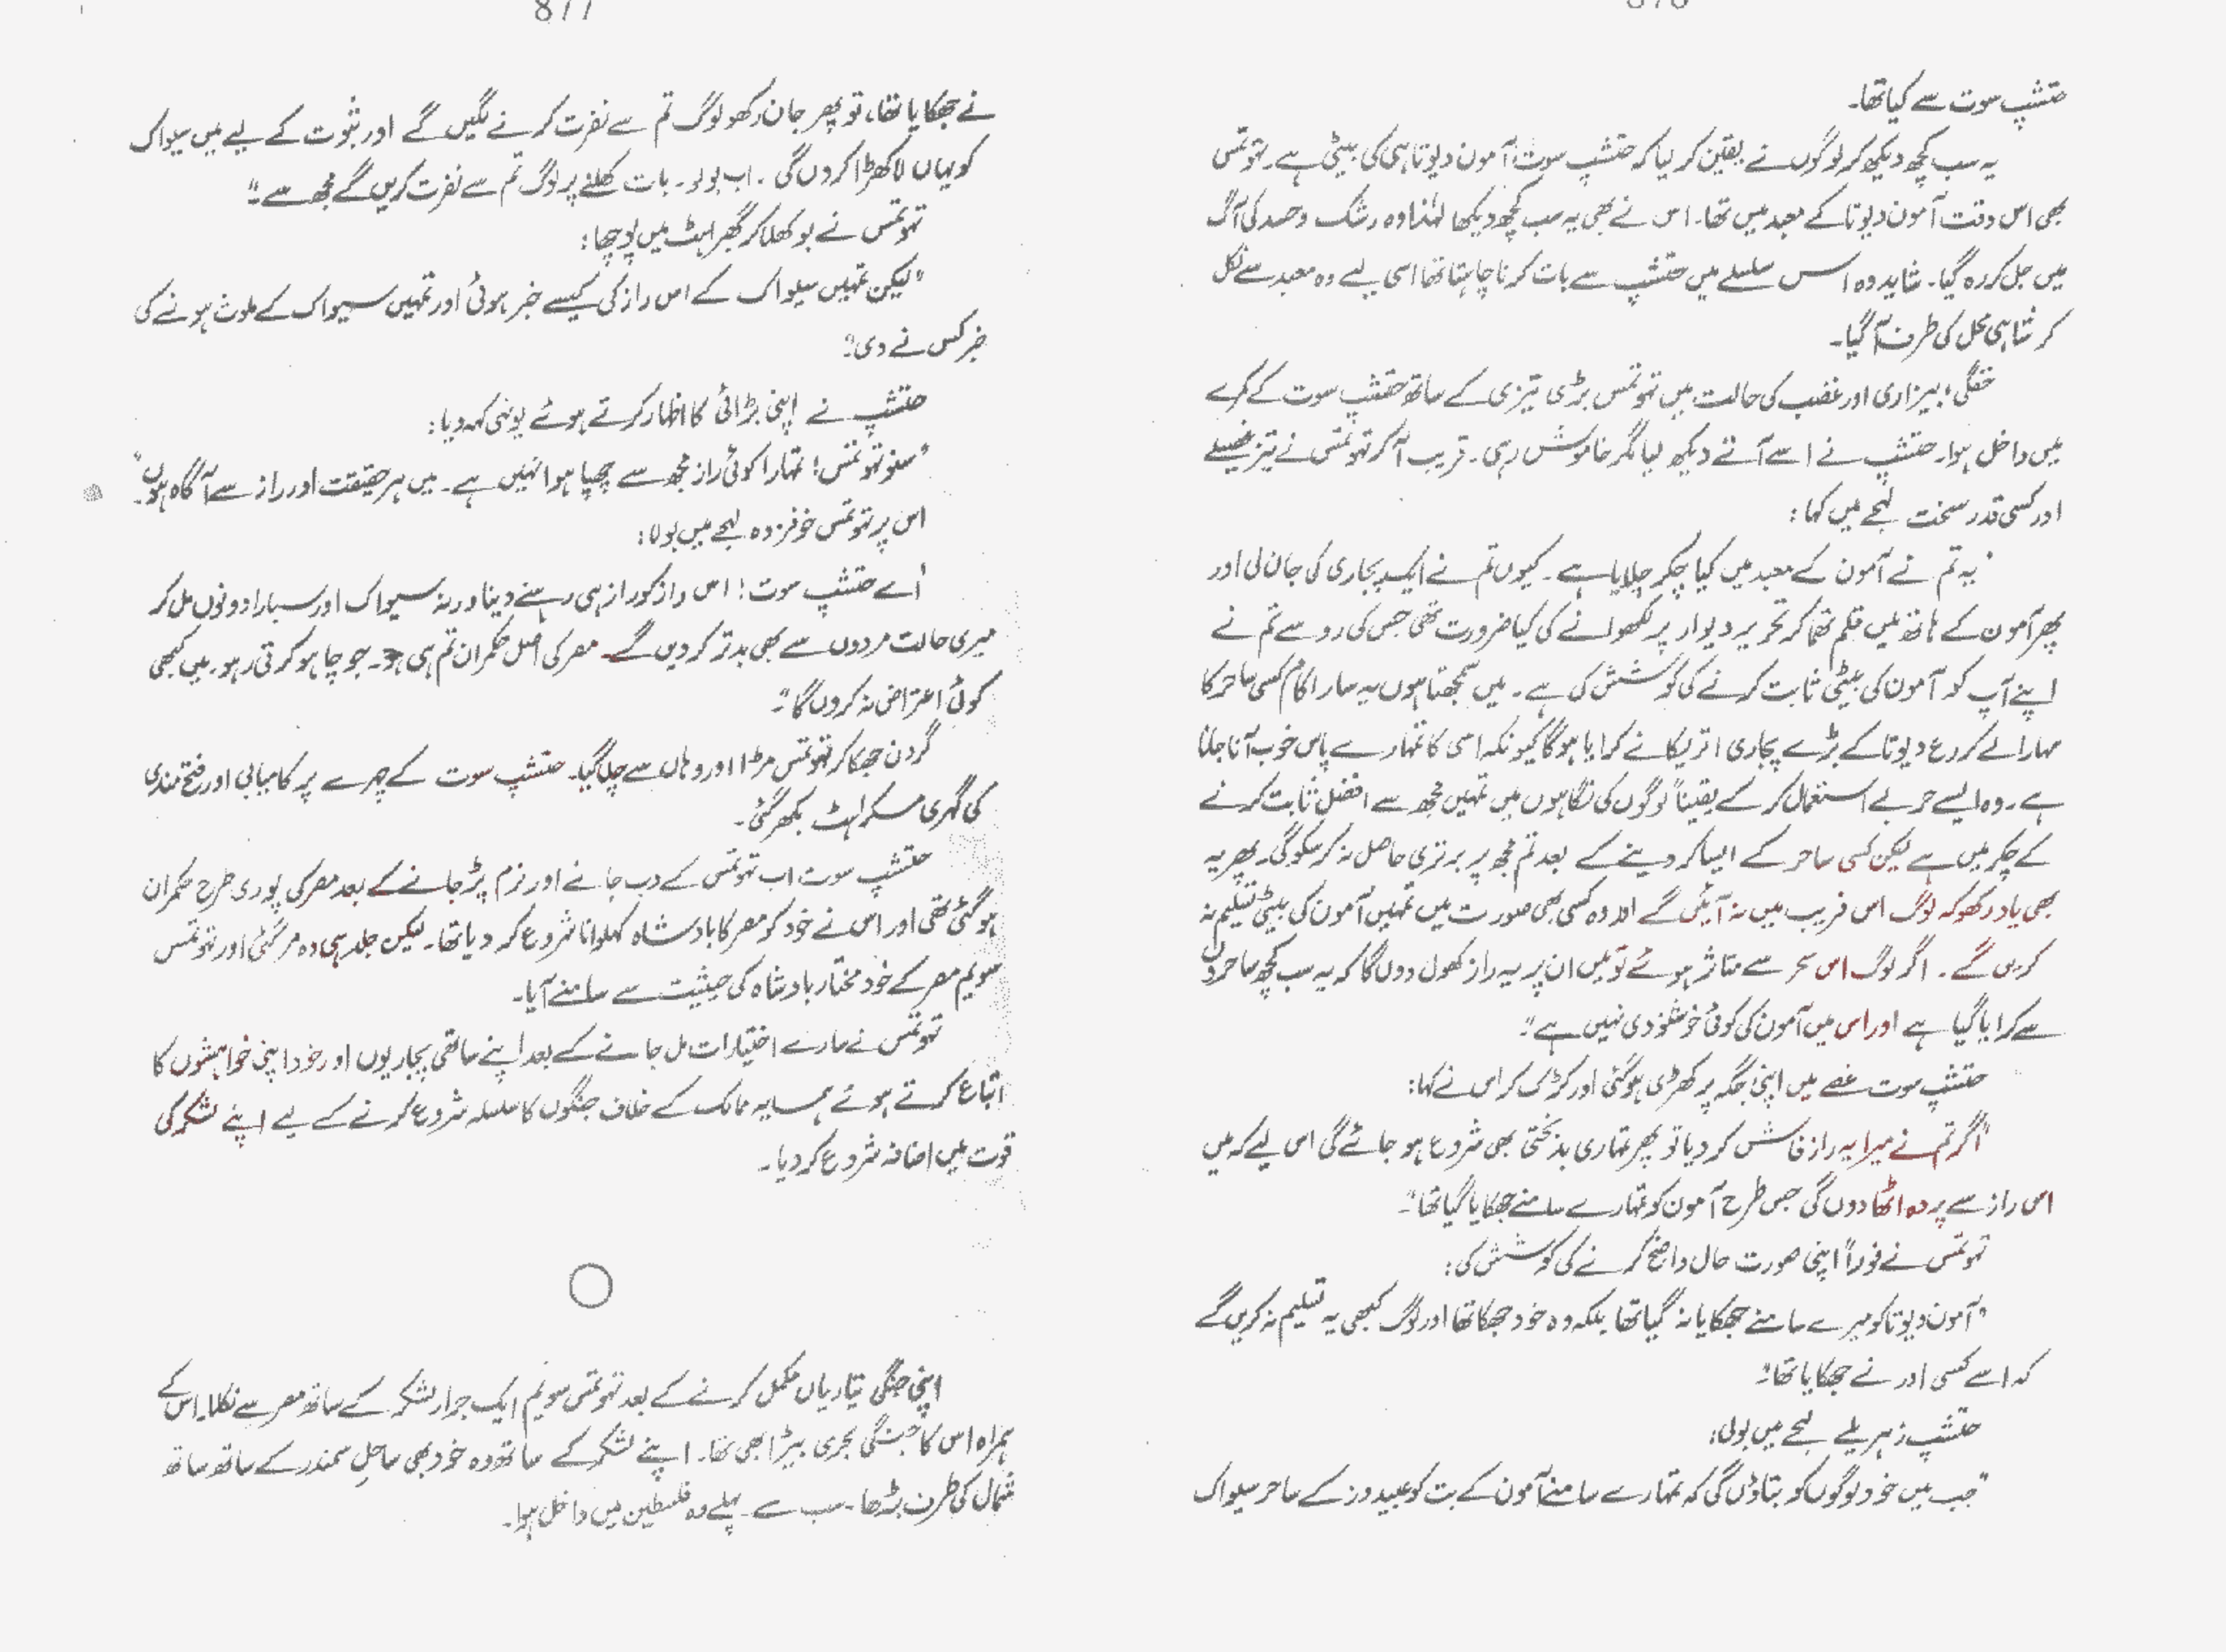 876
حتشپ سوت سے کیا تھا۔
یہ سب کچھ دیکھ کر لوگوں نے یقین کر لیا کہ حتشپ سوت آمون دیوتا ہی کی بیٹی ہے۔ تہوتمس
بھی اس وقت آمون دیوتا کے معبد میں تھا۔ اس نے بھی یہ سب کچھ دیکھا لہٰذا وہ رشک و حسد کی آگ
میں جل کر رہ گیا۔ شاید وہ اس سلسلے میں حتشپ سے بات کرنا چاہتا تھا اسی لیے وہ معبد سے نکل
کر شاہی محل کی طرف آ گیا۔
خفگی، بیزاری اور غضب کی حالت میں تہوتمس بڑی تیزی کے ساتھ حتشپ سوت کے کمرے
میں داخل ہوا۔ حتشپ نے اسے آتے دیکھ لیا مگر خاموش رہی۔ قریب آ کر تہوتمس نے تیز غصیلے
اور کسی قدر سخت لہجے میں کہا:
"یہ تم نے آمون کے معبد میں کیا چکر چلایا ہے۔ کیوں تم نے ایک پجاری کی جان لی اور
پھر آمون کے ہاتھ میں قلم تھما کر تحریر دیوار پر لکھوانے کی کیا ضرورت تھی جس کی رو سے تم نے
اپنے آپ کو آمون کی بیٹی ثابت کرنے کی کوشش کی ہے۔ میں سمجھتا ہوں یہ سارا کام کسی ساحر کا
سہارا لے کر رع دیوتا کے بڑے پجاری اتریکا نے کرایا ہوگا کیونکہ اسی کا تمہارے پاس خوب آنا جانا
ہے۔ وہ ایسے حربے استعمال کر کے یقیناً لوگوں کی نگاہوں میں تمہیں مجھ سے افضل ثابت کرنے
کے چکر میں ہے لیکن کسی ساحر کے ایسا کر دینے کے بعد تم مجھ پر برتری حاصل نہ کر سکو گی۔ پھر یہ
بھی یاد رکھو کہ لوگ اس فریب میں نہ آئیں گے اور وہ کسی بھی صورت میں تمہیں آمون کی بیٹی تسلیم نہ
کریں گے۔ اگر لوگ اس سحر سے متاثر ہوئے تو میں ان پر یہ راز کھول دوں گا کہ یہ سب کچھ ساحروں
سے کرایا گیا ہے اور اس میں آمون کی کوئی خوشنودی نہیں ہے"۔
حتشپ سوت غصے میں اپنی جگہ پر کھڑی ہوگئی اور کڑک کر اس نے کہا:
"اگر تم نے میرا یہ راز فاش کر دیا تو پھر تمہاری بدبختی بھی شروع ہو جائے گی اس لیے کہ میں
اس راز سے پردہ اٹھا دوں گی جس طرح آمون کو تمہارے سامنے جھکایا گیا تھا"۔
تہوتمس نے فوراً اپنی صورت حال واضح کرنے کی کوشش کی:
"آمون دیوتا کو میرے سامنے جھکایا نہ گیا تھا بلکہ وہ خود جھکا تھا اور لوگ کبھی یہ تسلیم نہ کریں گے
کہ اسے کسی اور نے جھکایا تھا"۔
حتشپ زہریلے لہجے میں بولی:
"جب میں خود لوگوں کو بتاؤں گی کہ تمہارے سامنے آمون کے بت کو عبیدوز کے ساحر سیواک
877
نے جھکایا تھا، تو پھر جان رکھو لوگ تم سے نفرت کرنے لگیں گے اور ثبوت کے لیے میں سیواک
کو یہاں لا کھڑا کروں گی۔ اب بولو۔ بات کھلنے پر لوگ تم سے نفرت کریں گے مجھ سے"۔
تہوتمس نے بوکھلا کر گھبراہٹ میں پوچھا:
"لیکن تمہیں سیواک کے اس راز کی کیسے خبر ہوئی اور تمہیں سیواک کے ملوث ہونے کی
خبر کس نے دی"۔
حتشپ نے اپنی بڑائی کا اظہار کرتے ہوئے یونہی کہہ دیا:
"سنو تہوتمس! تمہارا کوئی راز مجھ سے چھپا ہوا نہیں ہے۔ میں ہر حقیقت اور راز سے آگاہ ہوں"۔
اس پر تہوتمس خوفزدہ لہجے میں بولا:
"اے حتشپ سوت! اس راز کو راز ہی رہنے دینا ورنہ سیواک اور سبارا دونوں مل کر
میری حالت مردوں سے بھی بدتر کر دیں گے۔ مصر کی اصل حکمران تم ہی ہو۔ جو چاہو کرتی رہو۔ میں کبھی
کوئی اعتراض نہ کروں گا"۔
گردن جھکا کر تہوتمس مڑا اور وہاں سے چلا گیا۔ حتشپ سوت کے چہرے پر کامیابی اور فتح مندی
کی گہری مسکراہٹ بکھر گئی۔
حتشپ سوت اب تہوتمس کے دب جانے اور نرم پڑ جانے کے بعد مصر کی پوری طرح حکمران
ہو گئی تھی اور اس نے خود کو مصر کا بادشاہ کہلوانا شروع کر دیا تھا۔ لیکن جلد ہی وہ مر گئی اور تہوتمس
سویم مصر کے خود مختار بادشاہ کی حیثیت سے سامنے آیا۔
تہوتمس نے سارے اختیارات مل جانے کے بعد اپنے ساتھی پجاریوں اور خود اپنی خواہشوں کا
اتباع کرتے ہوئے ہمسایہ ممالک کے خلاف جنگوں کا سلسلہ شروع کرنے کے لیے اپنے لشکر کی
قوت میں اضافہ شروع کر دیا۔
اپنی جنگی تیاریاں مکمل کرنے کے بعد تہوتمس سویم ایک جرار لشکر کے ساتھ مصر سے نکلا۔ اس کے
ہمراہ اس کا جنگی بحری بیڑا بھی تھا۔ اپنے لشکر کے ساتھ وہ خود بھی ساحلِ سمندر کے ساتھ ساتھ
شمال کی طرف بڑھا۔ سب سے پہلے وہ فلسطین میں داخل ہوا۔